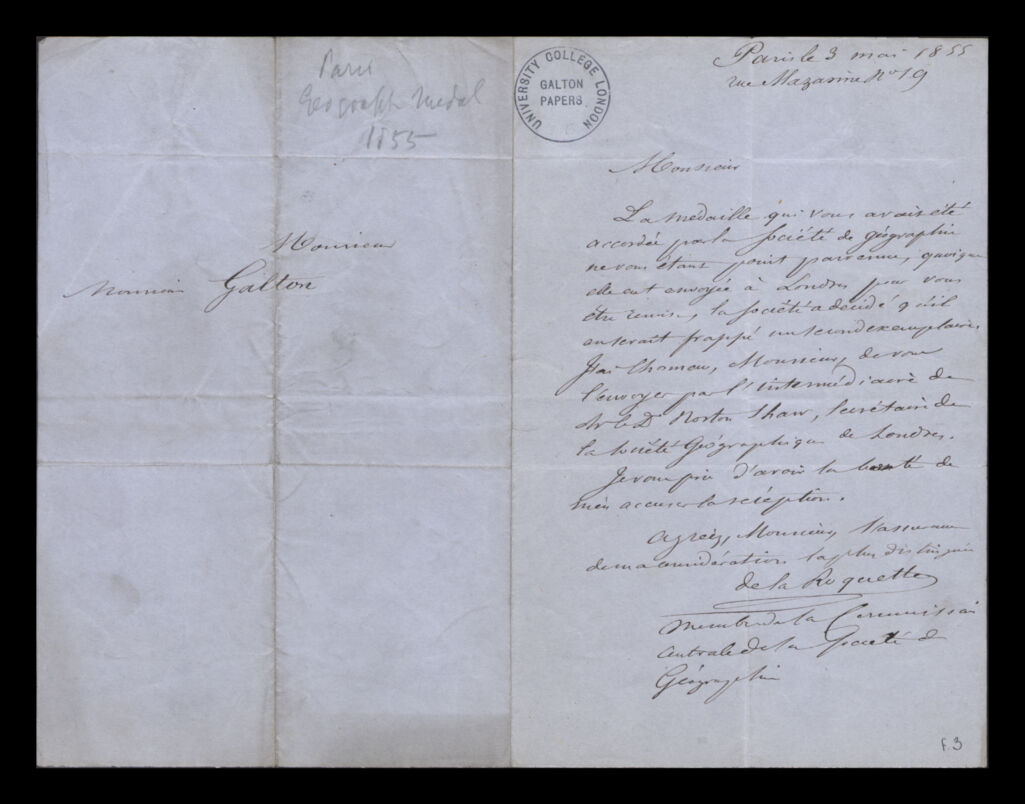 Paris
Geograph Medal
1855
Monsieur
Monsieur Galton
UNIVERSITY COLLEGE LONDON
GALTON
PAPERS
Paris le 3 mai 1855
rue Mazarine No 19
Monsieur
La medaille qui vous avait été
accordée par la Société de géographie
ne vous étant point parvenue, quoique
elle eut envoyée à Londres pour vous
être remise, la société a décidé qu'il
en serait frappé un second exemplaire.
J'ai l'honneur, Monsieur, de vous
l'envoyer par l'intermédiaire de
Mr le Dr Norton Shaw, Secrétaire de
la Société Géographique de Londres.
Je vous prie d'avoir la bonté de
m'en accuser la réception.
Agréez, Monsieur, l'assurance
de ma considération la plus distinguée
de la Roquette
membre de la Commission
centrale de la Société de
Géographie
f.3